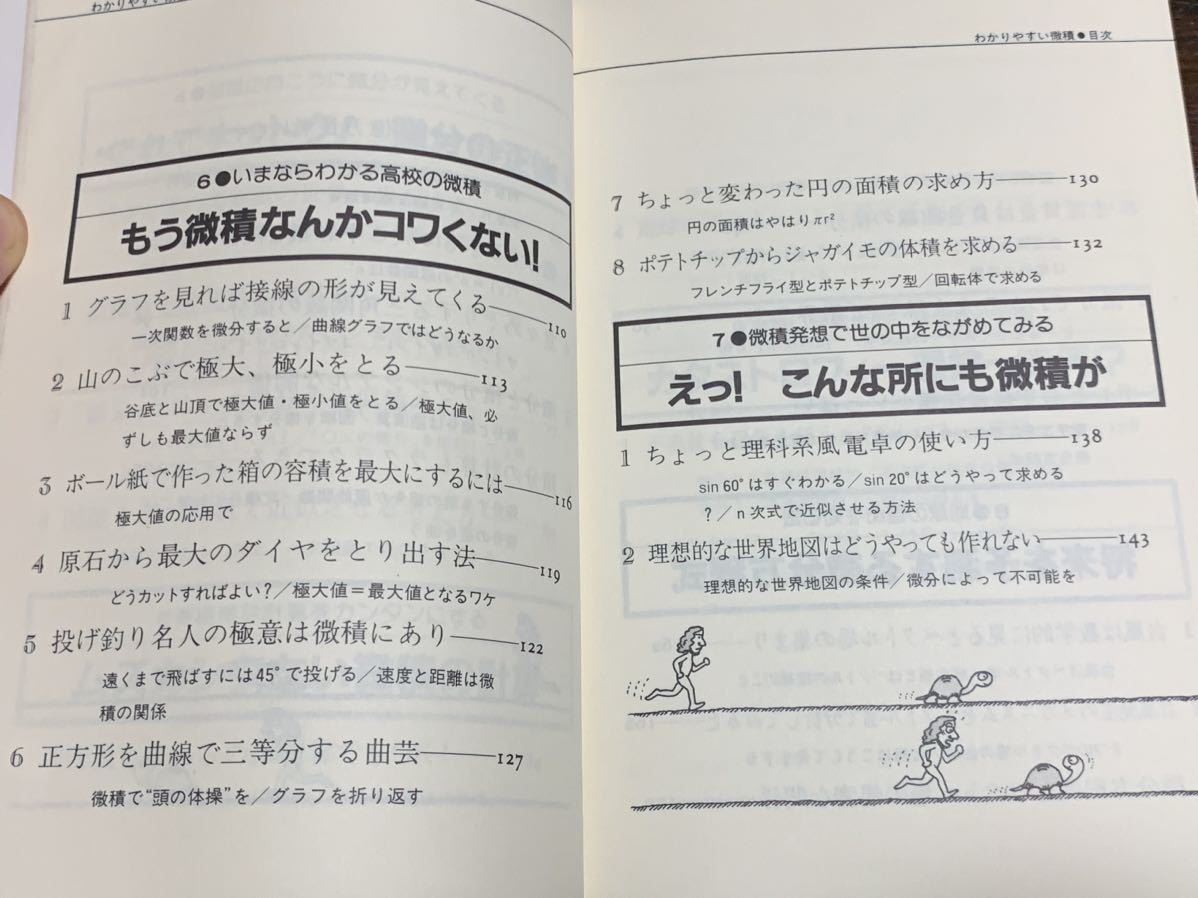 わかりやすい微積
6●いまならわかる高校の微積
もう微積なんかコワくない!
1 グラフを見れば接線の形が見えてくる——110
一次関数を微分すると/曲線グラフではどうなるか
2 山のこぶで極大、極小をとる——113
谷底と山頂で極大値・極小値をとる/極大値、必
ずしも最大値ならず
3 ボール紙で作った箱の容積を最大にするには——116
極大値の応用で
4 原石から最大のダイヤをとり出す法——119
どうカットすればよい?/極大値=最大値となるワケ
5 投げ釣り名人の極意は微積にあり——122
遠くまで飛ばすには45°で投げる/速度と距離は微
積の関係
6 正方形を曲線で三等分する曲芸——127
微積で“頭の体操”を/グラフを折り返す
わかりやすい微積●目次
7 ちょっと変わった円の面積の求め方——130
円の面積はやはりπr²
8 ポテトチップからジャガイモの体積を求める——132
フレンチフライ型とポテトチップ型/回転体で求める
7●微積発想で世の中をながめてみる
えっ! こんな所にも微積が
1 ちょっと理科系風電卓の使い方——138
sin 60°はすぐわかる/sin 20°はどうやって求める
?/n次式で近似させる方法
2 理想的な世界地図はどうやっても作れない——143
理想的な世界地図の条件/微分によって不可能を